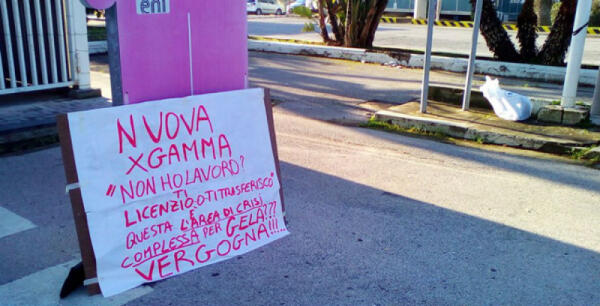 eni
NUOVA
XGAMMA
"NON HO LAVORO?
TI
LICENZIO-O-TI TRASFERISCO"
E
QUESTA L'AREA DI CRISI
COMPLESSA PER GELA???
VERGOGNA!!!...